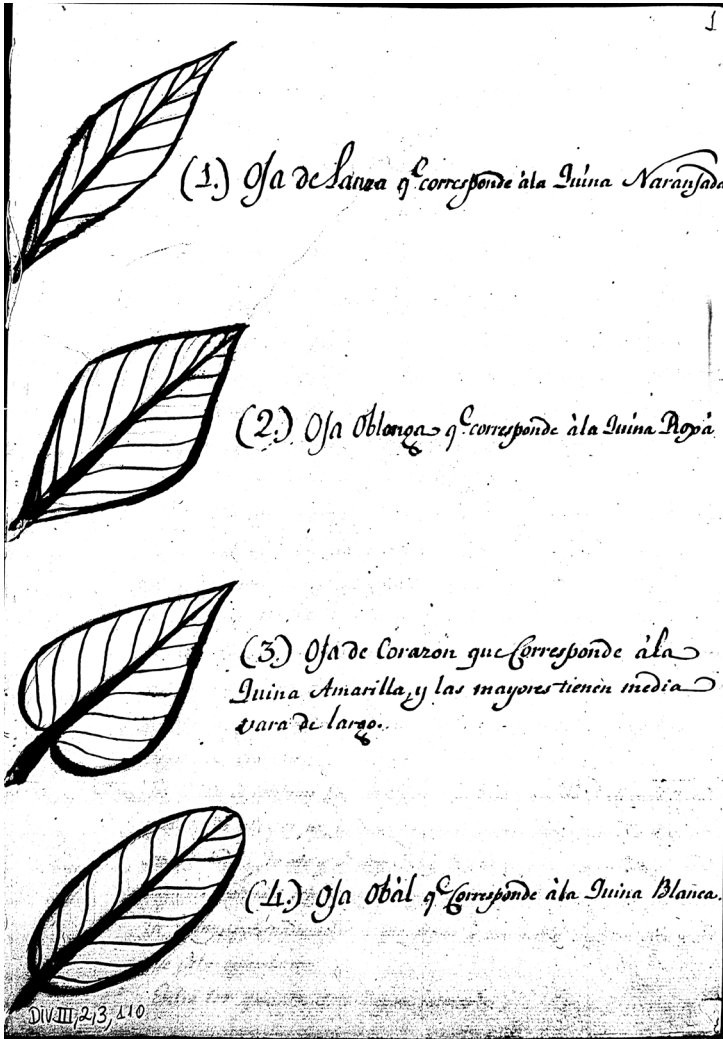 1
(1.) Oja de Lanza q.^e corresponde àla Quina Naranjada
(2.) Oja Oblonga q.^e corresponde àla Quina Roxa
(3.) Oja de Corazon que Corresponde àla
Quina Amarilla, y las mayores tienen media
vara de largo.
(4.) Oja Obàl q.^e Corresponde àla Quina Blanca.
DIV.III,2,3,110